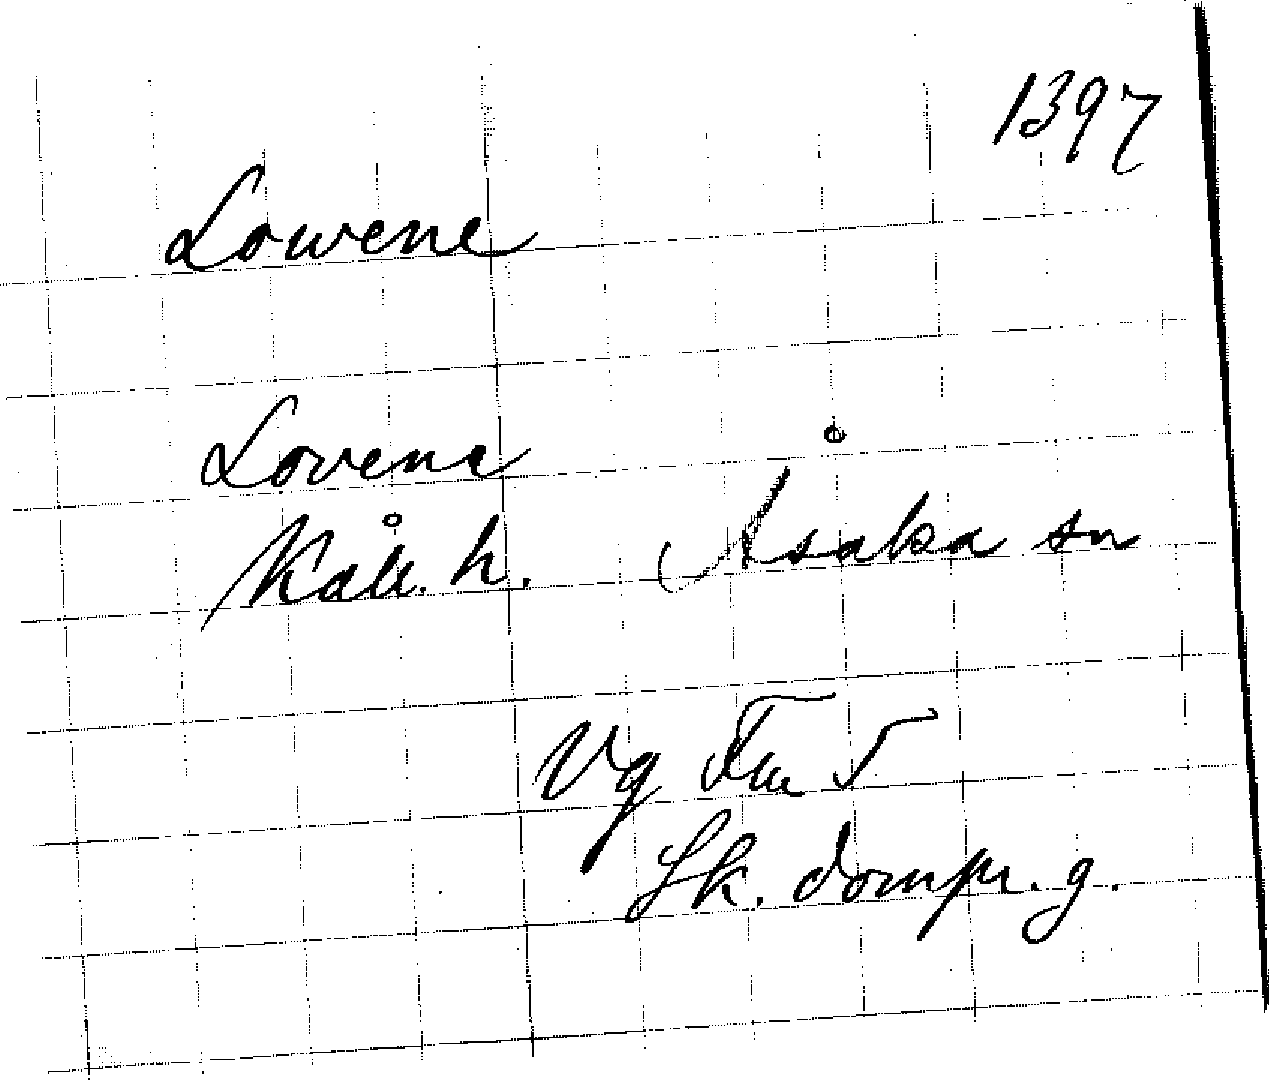 1397
Lowene
Lovene
Kåk. h. Åsaka sn
Vg Fm 5
Sk. dompr. g.